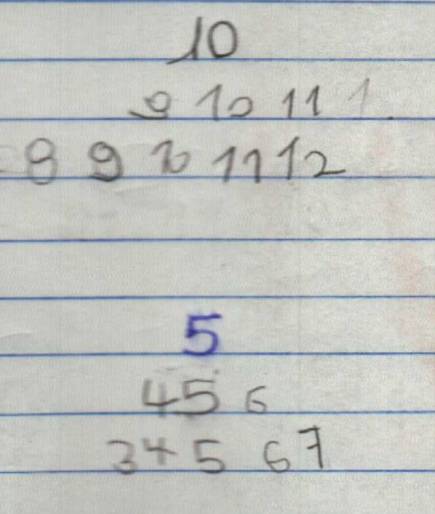 10
9 10 11 1
8 9 10 11 12
5
4 5 6
3 4 5 6 7